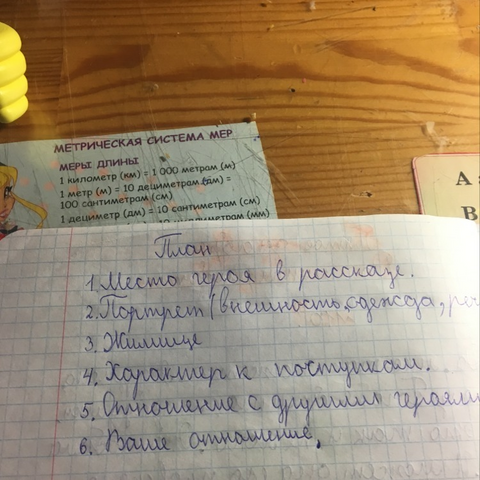 МЕТРИЧЕСКАЯ СИСТЕМА МЕР
МЕРЫ ДЛИНЫ
1 километр (км) = 1 000 метрам (м)
1 метр (м) = 10 дециметрам (дм) =
100 сантиметрам (см)
1 дециметр (дм) = 10 сантиметрам (см)
миллиметрам (мм)
А
В
План
1. Место героя в рассказе.
2. Портрет (внешность, одежда, реч
3. Жилище
4. Характер к поступкам.
5. Отношение с другими героями
6. Ваше отношение.